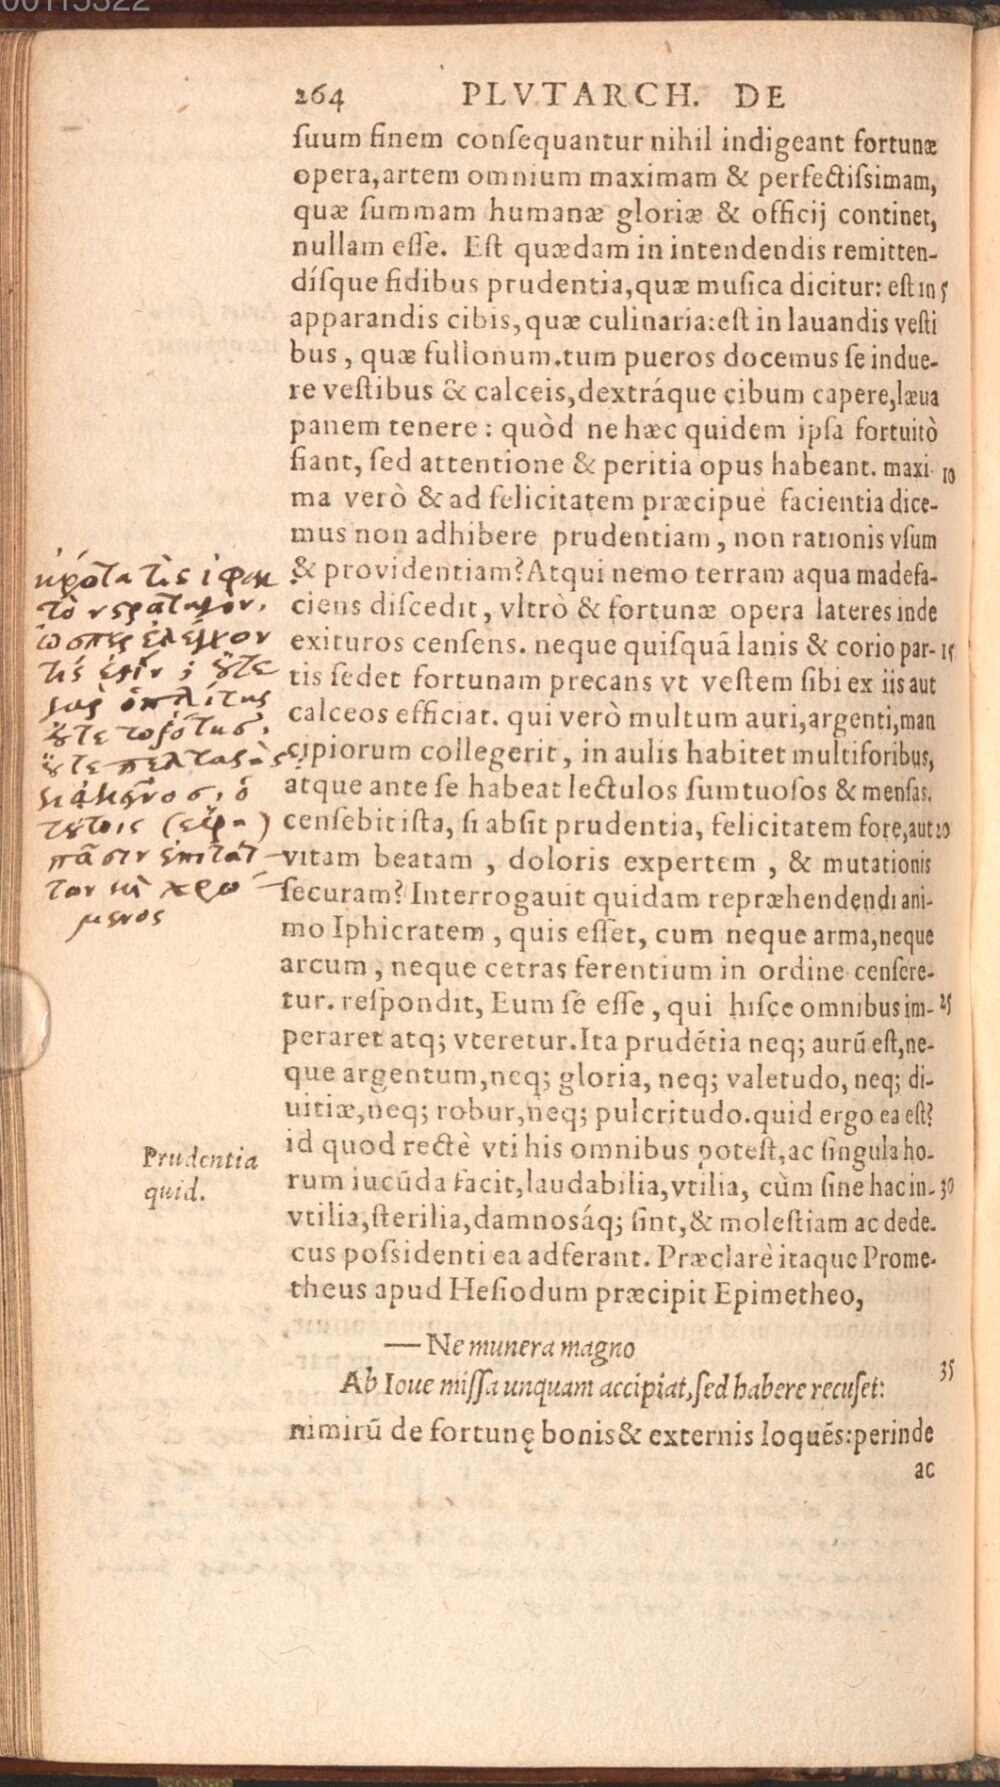 00115322
264 PLVTARCH. DE
suum finem consequantur nihil indigeant fortunæ
opera, artem omnium maximam & perfectissimam,
quæ summam humanæ gloriæ & officij continet,
nullam esse. Est quædam in intendendis remitten-
dísque fidibus prudentia, quæ musica dicitur: est in 5
apparandis cibis, quæ culinaria: est in lauandis vesti
bus, quæ fullonum. tum pueros docemus se indue-
re vestibus & calceis, dextráque cibum capere, læua
panem tenere: quòd ne hæc quidem ipsa fortuitò
fiant, sed attentione & peritia opus habeant. maxi 10
ma verò & ad felicitatem præcipuè facientia dice-
mus non adhibere prudentiam, non rationis vsum
& providentiam? Atqui nemo terram aqua madefa-
ciens discedit, vltrò & fortunæ opera lateres inde
exituros censens. neque quisquã lanis & corio par- 15
tis sedet fortunam precans vt vestem sibi ex iis aut
calceos efficiat. qui verò multum auri, argenti, man
cipiorum collegerit, in aulis habitet multiforibus,
atque ante se habeat lectulos sumtuosos & mensas,
censebit ista, si absit prudentia, felicitatem fore, aut 20
vitam beatam, doloris expertem, & mutationis
securam? Interrogauit quidam repræhendendi ani-
mo Iphicratem, quis esset, cum neque arma, neque
arcum, neque cetras ferentium in ordine censere-
tur. respondit, Eum se esse, qui hisce omnibus im- 25
peraret atq; vteretur. Ita prudẽtia neq; aurũ est, ne-
que argentum, neq; gloria, neq; valetudo, neq; di-
uitiæ, neq; robur, neq; pulcritudo. quid ergo ea est?
id quod rectè vti his omnibus potest, ac singula ho-
rum iucũda facit, laudabilia, vtilia, cùm sine hac in- 30
vtilia, sterilia, damnosáq; sint, & molestiam ac dede-
cus possidenti ea adferant. Præclarè itaque Prome-
theus apud Hesiodum præcipit Epimetheo,
— Ne munera magno
Ab Ioue missa unquam accipiat, sed habere recuset: 35
nimirũ de fortunę bonis & externis loquẽs: perinde
ac
τὸν στρατηγὸν,
ὥσπερ ἐλέγχων
τίς ἐστιν; οὔτε
γὰρ ὁπλίτης
οὔτε τοξότης,
οὔτε πελταστὴς
ὁ
τούτοις
πᾶσιν ἐπιτάτ-
των καὶ χρώ-
μενος
Prudentia
quid.